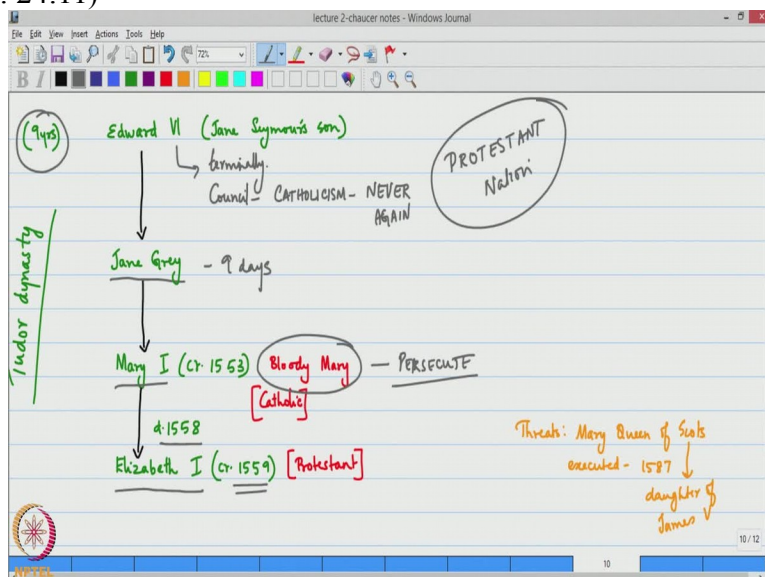 : 24:11)
lecture 2-chaucer notes - Windows Journal
File Edit View Insert Actions Tools Help
72%
B I
(9yrs) Edward VI (Jane Seymour's son)
terminally.
Council - CATHOLICISM - NEVER
AGAIN
PROTESTANT
Nation
Tudor dynasty
Jane Grey - 9 days
Mary I (Cr. 1553) Bloody Mary - PERSECUTE
[Catholic]
d. 1558
Elizabeth I (Cr. 1559) [Protestant]
Threats: Mary Queen of Scots
executed - 1587
daughter of
James V
10 / 12
10
NPTEL